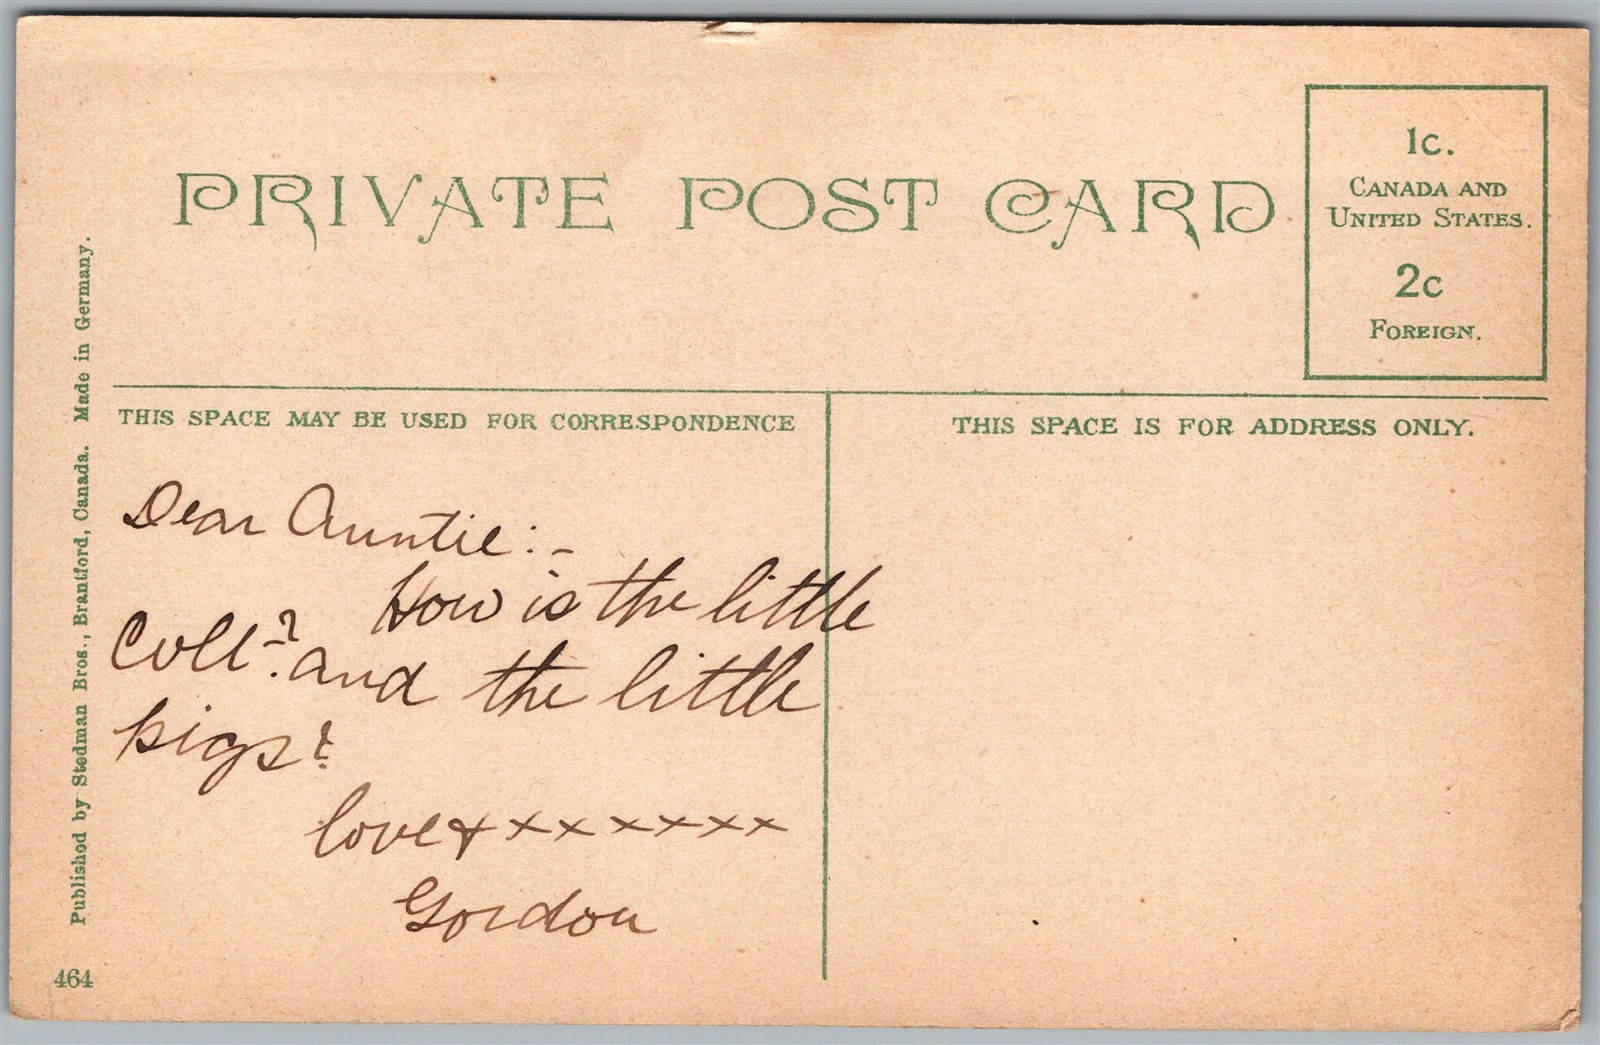 PRIVATE POST CARD
1c.
CANADA AND
UNITED STATES.
2c
FOREIGN.
THIS SPACE MAY BE USED FOR CORRESPONDENCE
THIS SPACE IS FOR ADDRESS ONLY.
Dear Auntie:-
How is the little
Colt? and the little
pigs?
love & x x x x x x
Gordon
Published by Stedman Bros., Brantford, Canada. Made in Germany.
464